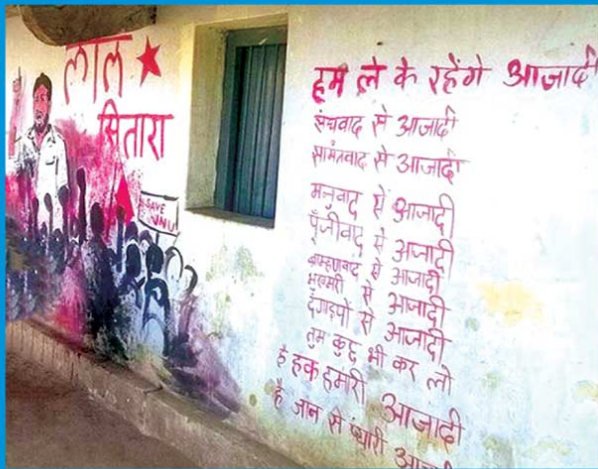 लाल
सितारा
SAVE
JNU
हम ले के रहेंगे आजादी
संघवाद से आजादी
सामंतवाद से आजादी
मनुवाद से आजादी
पूँजीवाद से आजादी
ब्राम्हणवाद से आजादी
भुखमरी से आजादी
दंगाइयों से आजादी
तुम कुछ भी कर लो
है हक हमारी आजादी
है जान से प्यारी